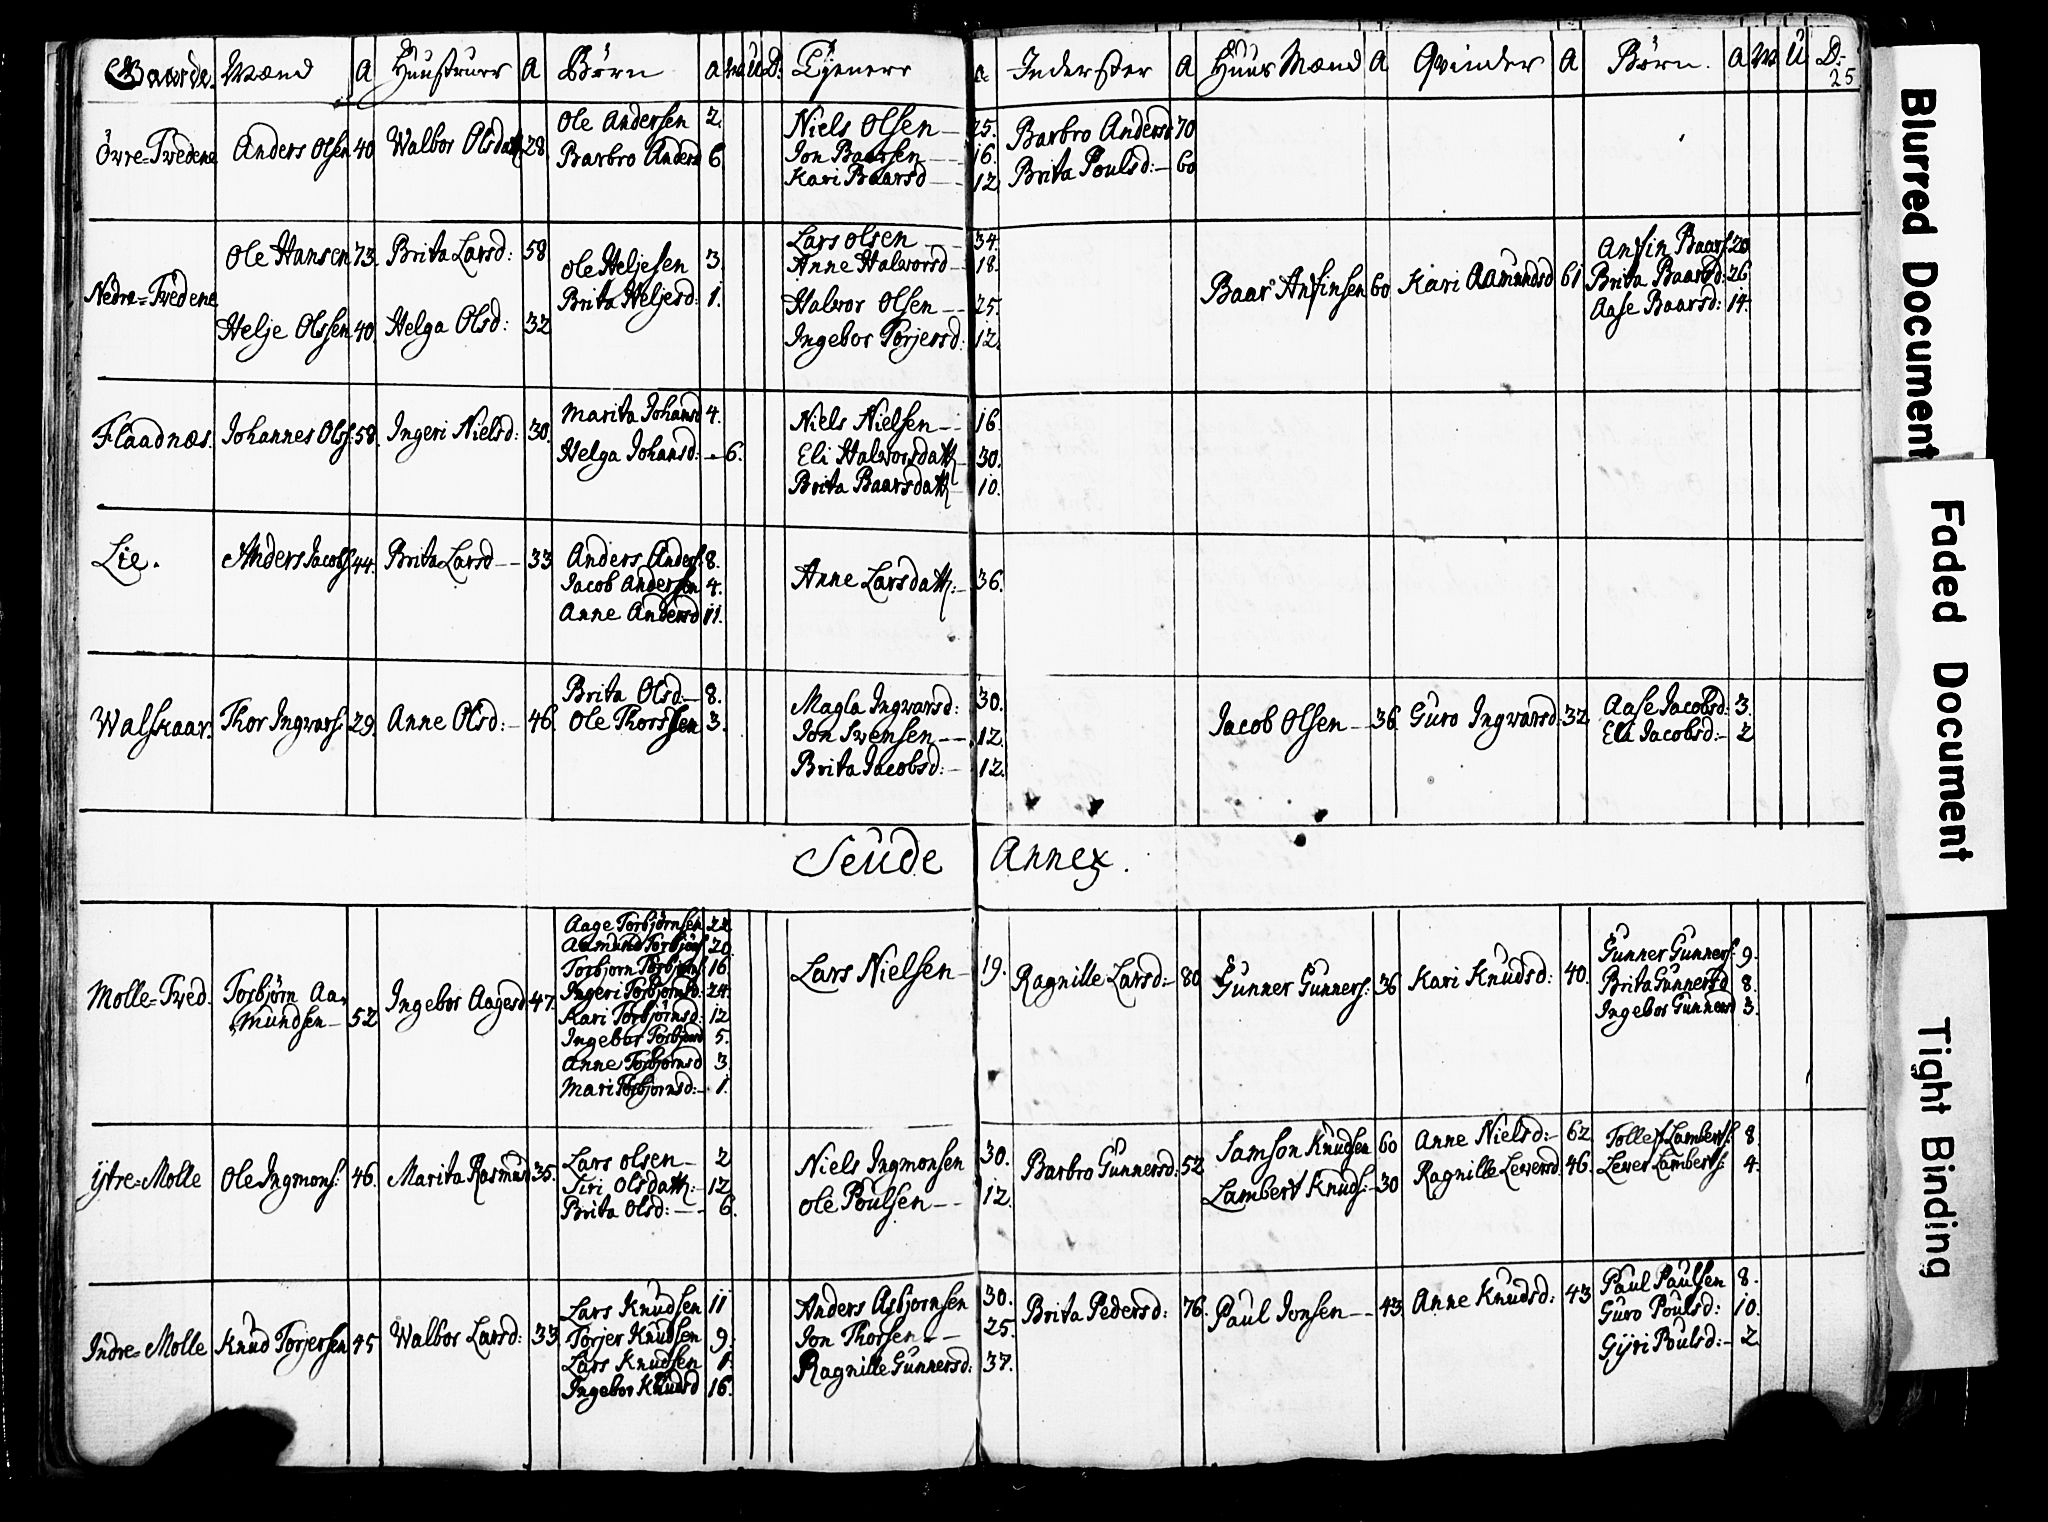 Gaarde. Mænd A Huustruer A Børn A M U D. Tÿenere A. Inderster A Huus Mænd A Qvinder A Børn. A M U D:
25
Övre=Tvedene Anders Olsen 40 Walbor Olsdatt 28
Ole Andersen 2.
Barbro Andersd 6
Niels Olsen — 25.
Jon Baarsen — 16.
Kari Baarsd — 12.
Barbro Andersd 70
Brita Poulsd: — 60
Nedre=Tvedene
Ole Hansen 73. Brita Larsd: 58
Helje Olssen 40. Helga Olsd: 32
Ole Heljesen 3.
Brita Heljesd: 1.
Lars Olsen — 34.
Anne Halvorsd — 18.
Halvor Olsen — 25.
Ingebor Torjersd: 12.
Baar Anfinsen 60 Kari Aamundsd 61
Anfin Baars: 20
Brita Baarsd: 26
Aase Baarsd: 14.
Flaadnæs. Johannes Ols: 58. Ingeri Nielsd: 30.
Marita Johansd 4.
Helga Johansd: — 6.
Niels Nielsen — 16.
Eli Halvorsdatt — 30.
Brita Baarsdatt — 10.
Lie. Anders Jacobs: 44. Brita Larsd — 33
Anders Anders: 8.
Jacob Andersen 4.
Anne Andersd 11.
Anne Larsdatt: — 36.
Walskaar. Thor Ingvars: 29. Anne Olsd: — 46.
Brita Olsd: — 8.
Ole Thorssen 3.
Magla Ingvarsd: 30.
Jon Svensen — 12.
Brita Jacobsd: — 12.
Jacob Olsen — 36. Guro Ingvarsd 32
Aase Jacobsd: 3.
Eli Jacobsd: — 2
Seude Annex.
Molle=Tved. Torbjörn Aa=
mundsen — 52 Ingebor Aagesd 47.
Aage Torbjørnsen 22
Aamund Torbjørs: 20
Torbjorn Torbjorns 16
Ingeri Torbjørnsd: 24.
Kari Torbjørnsd: 12
Ingebor Torbjørsd 5.
Anne Torbjørnsd 3.
Mari Torbjornsd: — 1.
Lars Nielsen — 19.
Ragnille Larsd: — 80 Gunner Gunners: 36 Kari Knudsd: 40.
Gunner Gunners: 9.
Brita Gunnersd 8.
Ingebor Gunnersd 3.
Ÿtre=Molle Ole Ingmons: 46. Marita Rasmun 35.
Lars Olsen — 2
Siri Olsdatt: — 12
Brita Olsd: — 6.
Niels Ingmonsen 30.
Ole Poulsen — 12.
Barbro Gunnersd: 52
Samson Knudsen 60 Anne Nielsd: — 62
Lambert Knuds: — 30 Ragnille Leversd: 46.
Tollef Lamberts: 8
Lever Lamberts: 4.
Indre=Molle Knud Torjersen 45 Walbor Larsd: 33
Lars Knudsen 11
Torjer Knudsen 9.
Lars Knudsen 1.
Ingebor Knudsd 16.
Anders Asbjornsen 30.
Jon Thorsen — 25.
Ragnille Gunnersd: 37.
Brita Pedersd: 76. Paul Jonsen — 43 Anne Knudsd: 43
Paul Paulsen 8.
Guro Poulsd: 10.
Gÿri Poulsd: — 2
Blurred Document
Faded Document
Tight Binding